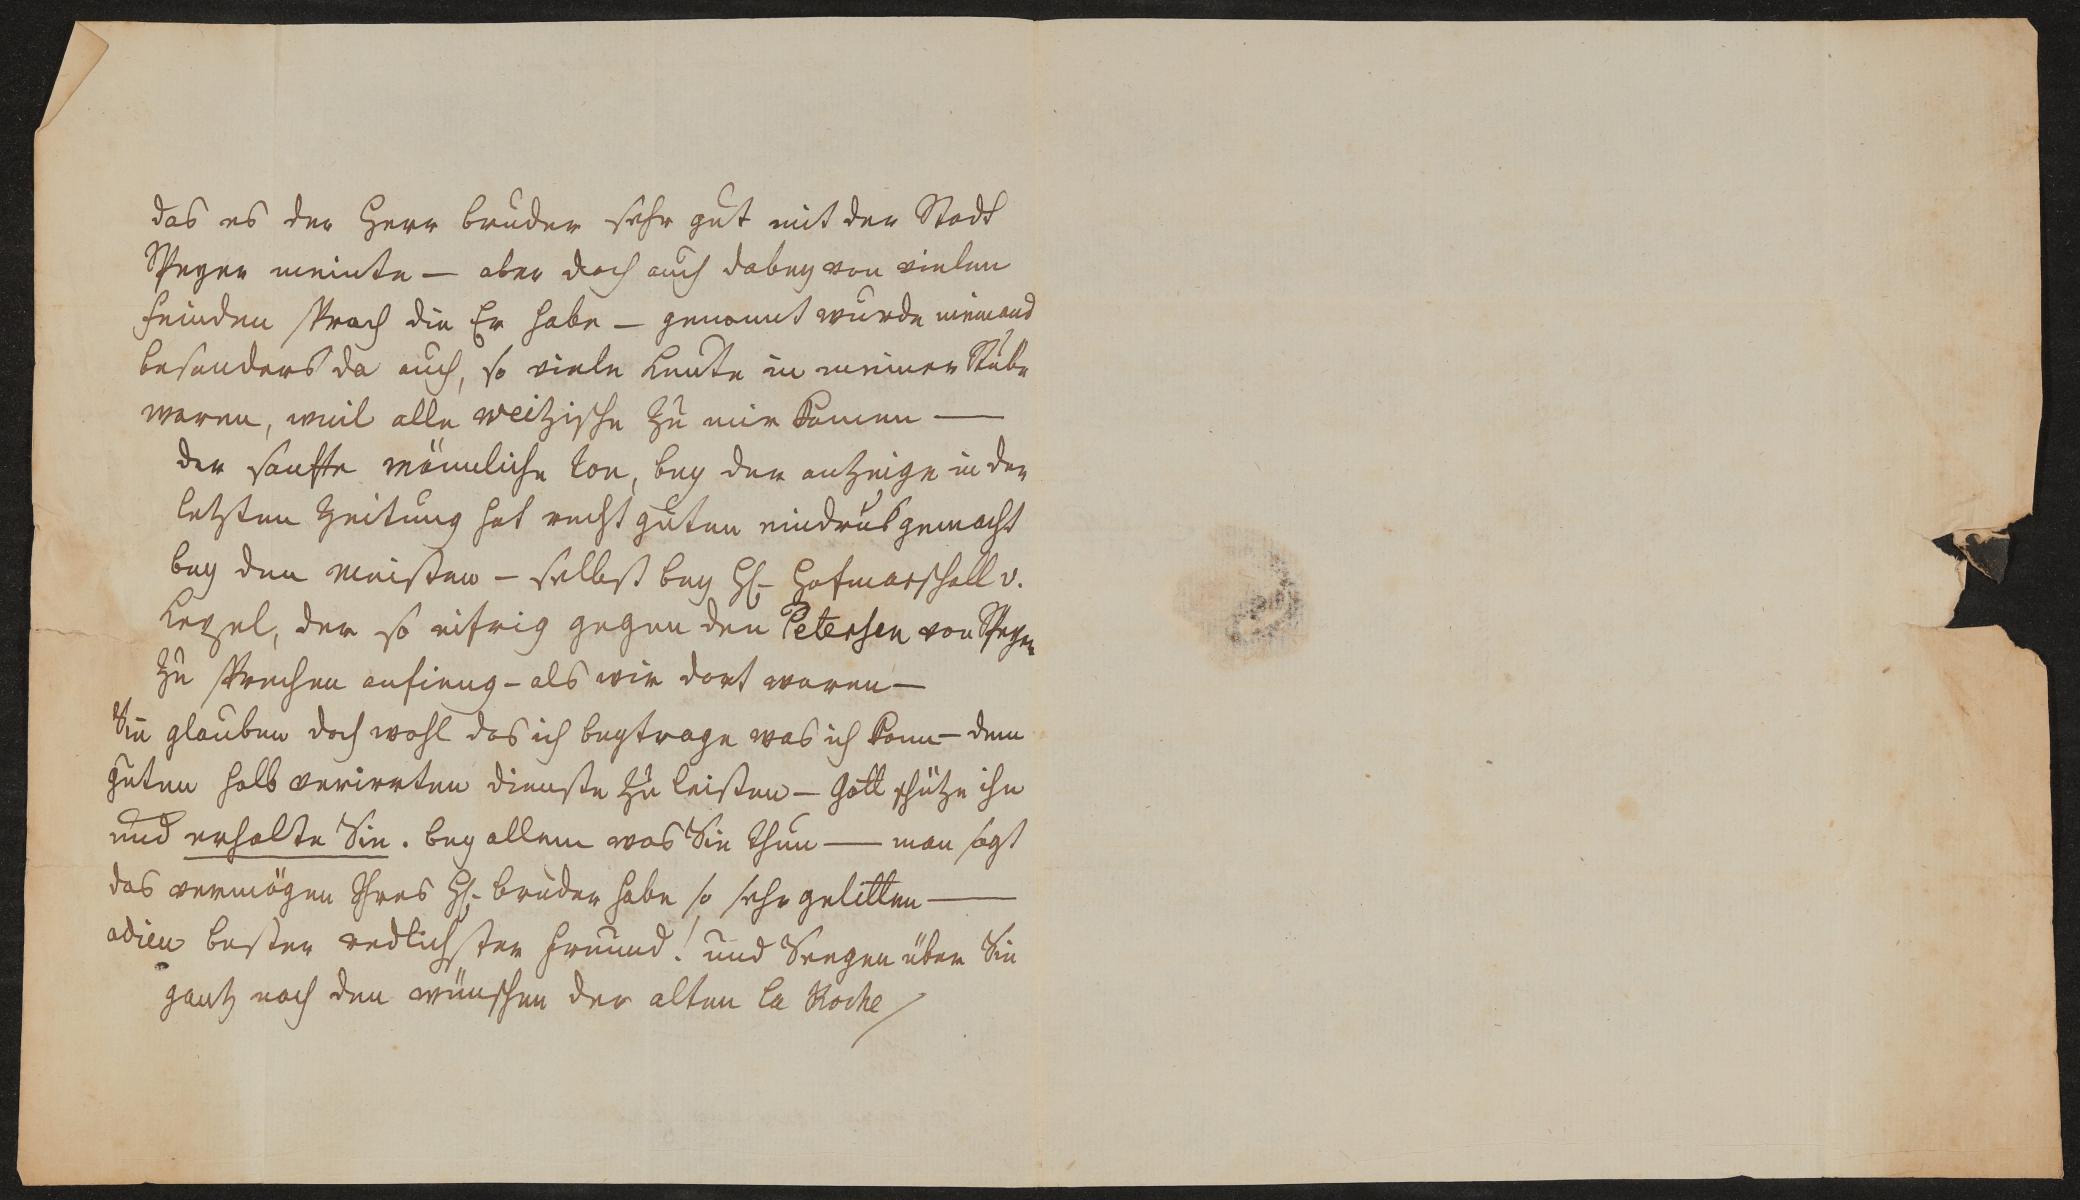 das es der Herr bruder sehr gut mit der Stadt
Speyer meinte — aber doch auch dabey von vielen
feinden sprach die Er habe — genannt wurde niemand
besonders da auch, so viele Leute in meiner Stube
waren, weil alle zu mir kamen —
der sanfte männliche ton, bey der anzeige in der
letzten Zeitung hat recht guten eindruk gemacht
bey den meisten — selbst bey H. Hofmarschall v.
der so eifrig gegen den Petersen von Speyer
zu sprechen anfieng — als wir dort waren —
Sie glauben doch wohl das ich beytrage was ich kann — dem
guten halb verirrten dienste zu leisten — Gott schütze ihn
und erhalte Sie. bey allem was Sie thun — man sagt
das vermögen Ihres H. bruder habe so sehr gelitten —
adieu bester redlichster freund! und Seegen über Sie
gantz nach den wünschen der alten la Roche